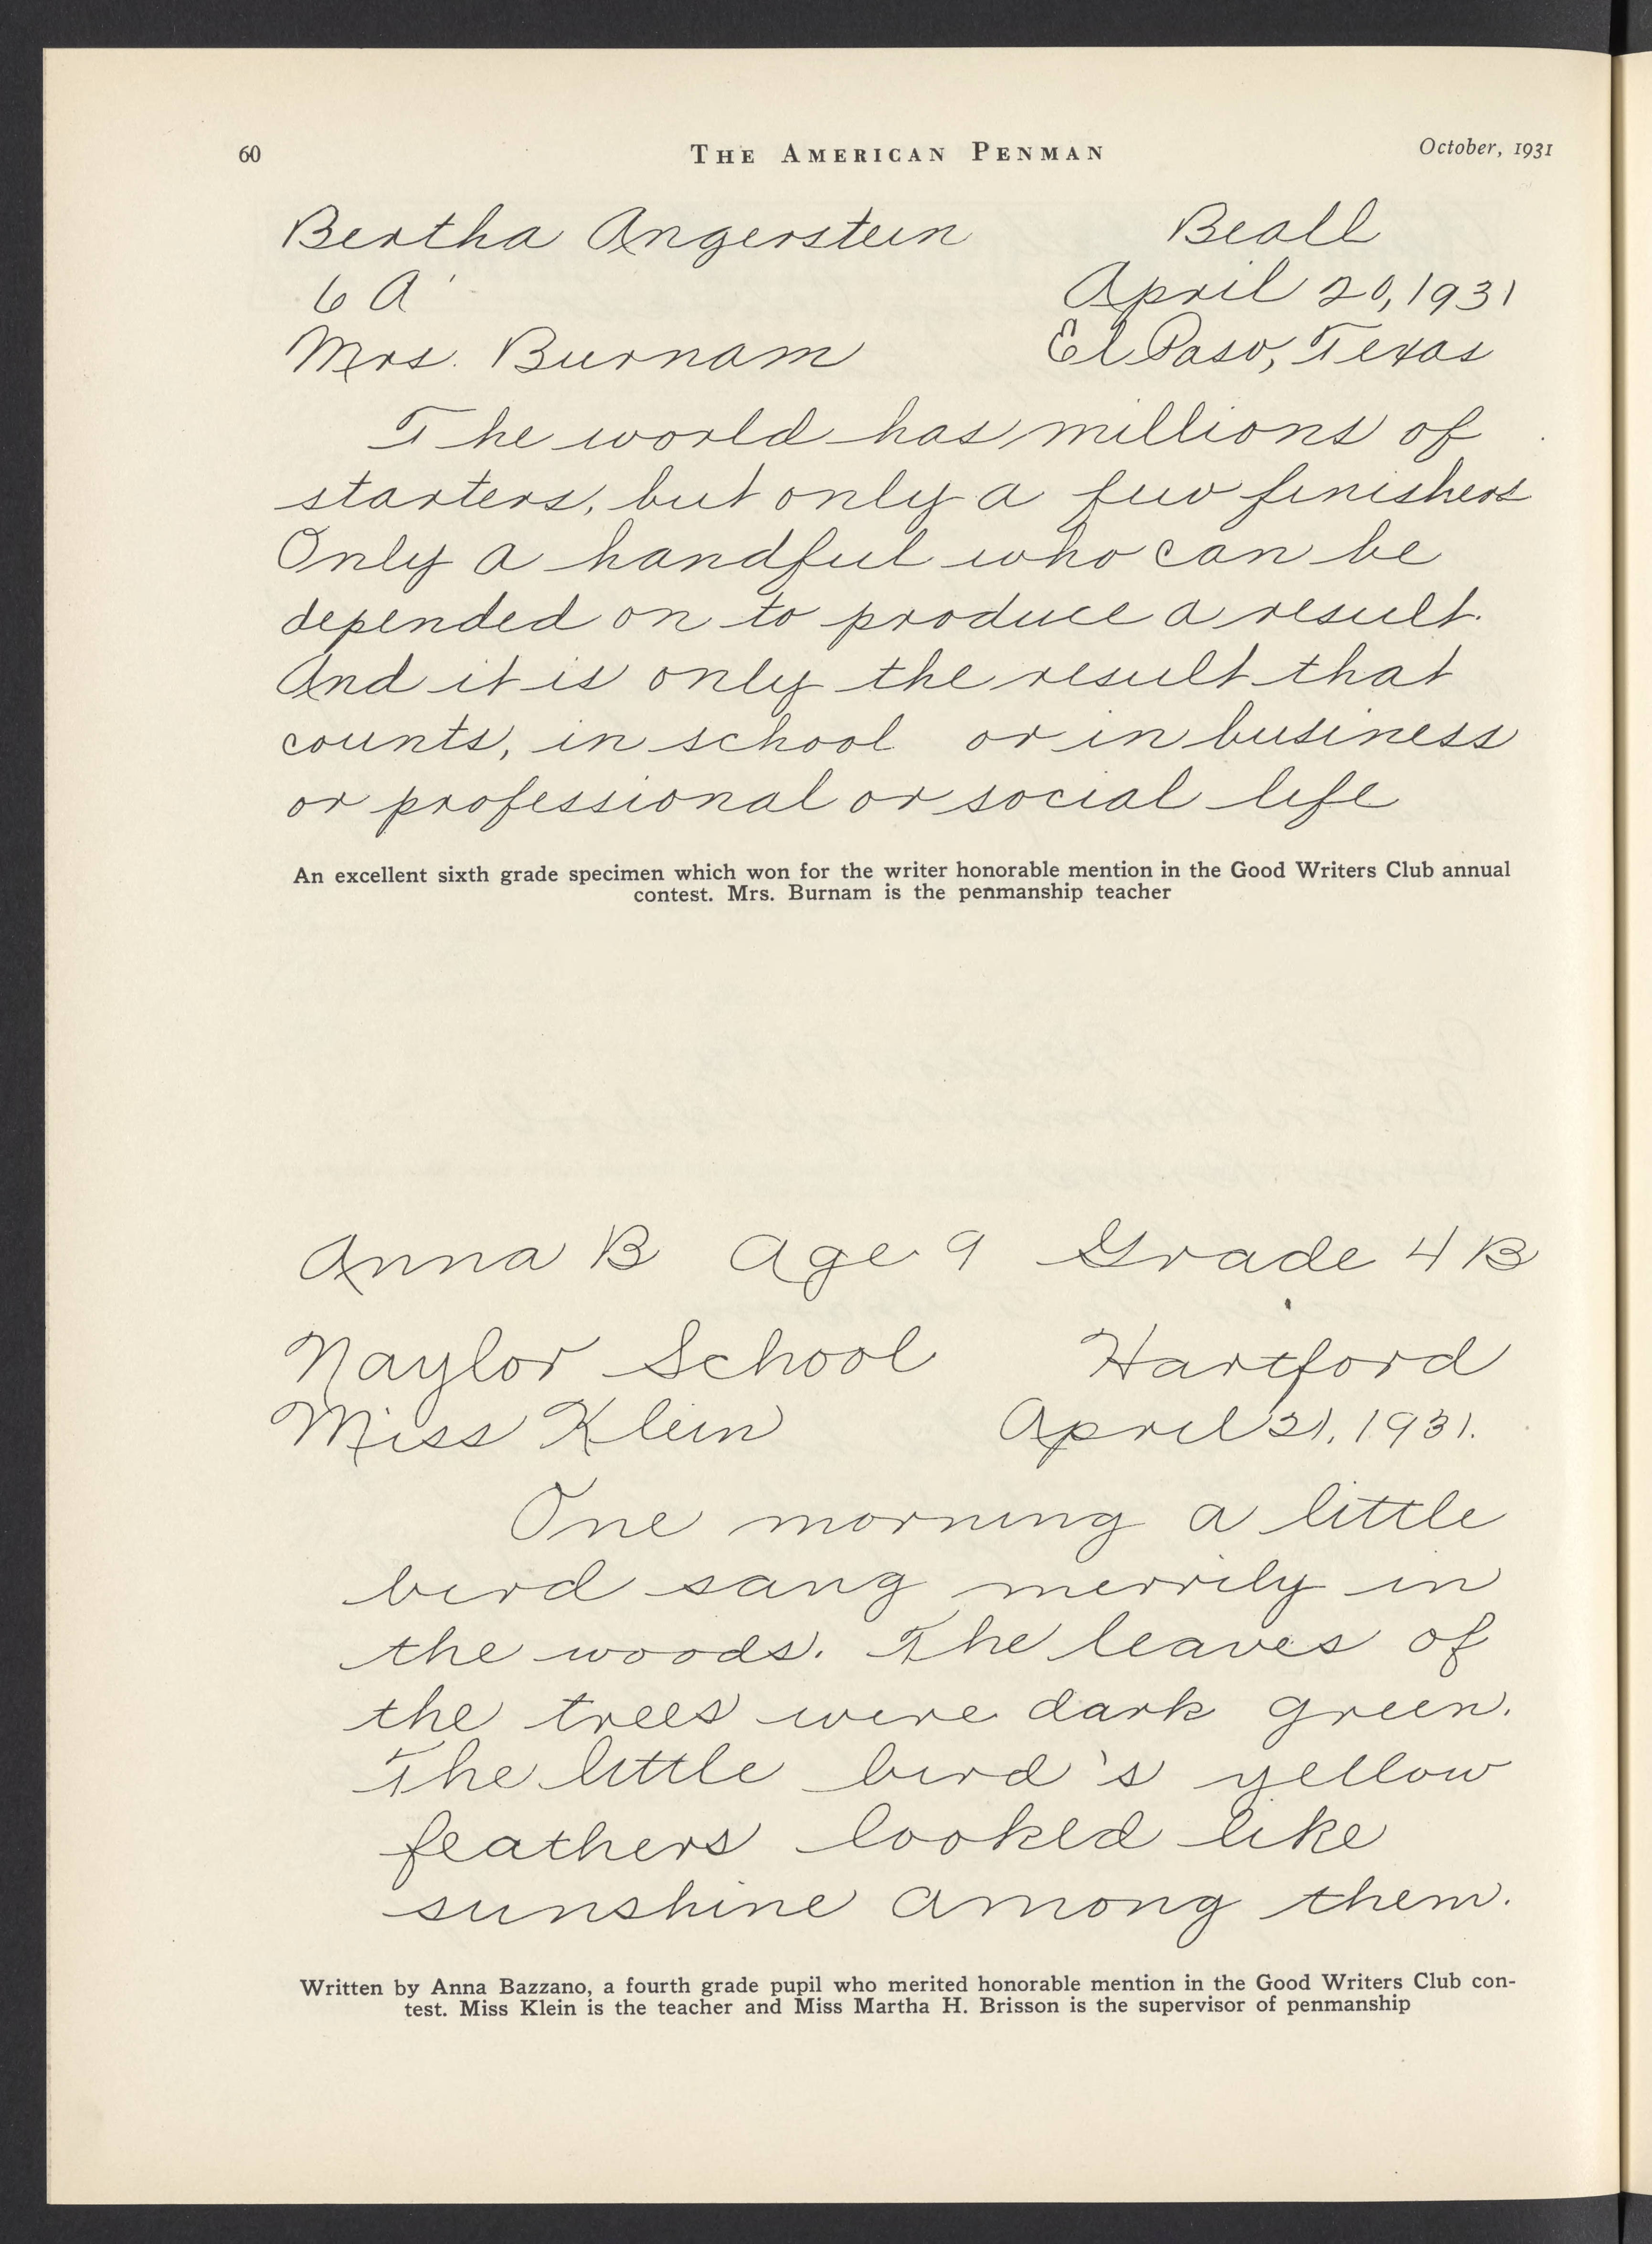 60 THE AMERICAN PENMAN October, 1931
Bertha Angerstein Beall
6 A April 20, 1931
Mrs. Burnam El Paso, Texas
The world has millions of
starters, but only a few finishers
Only a handful who can be
depended on to produce a result.
And it is only the result that
counts, in school or in business
or professional or social life
An excellent sixth grade specimen which won for the writer honorable mention in the Good Writers Club annual
contest. Mrs. Burnam is the penmanship teacher
Anna B Age 9 Grade 4 B
Naylor School Hartford
Miss Klein April 21, 1931.
One morning a little
bird sang merrily in
the woods. The leaves of
the trees were dark green.
The little bird's yellow
feathers looked like
sunshine among them.
Written by Anna Bazzano, a fourth grade pupil who merited honorable mention in the Good Writers Club con-
test. Miss Klein is the teacher and Miss Martha H. Brisson is the supervisor of penmanship